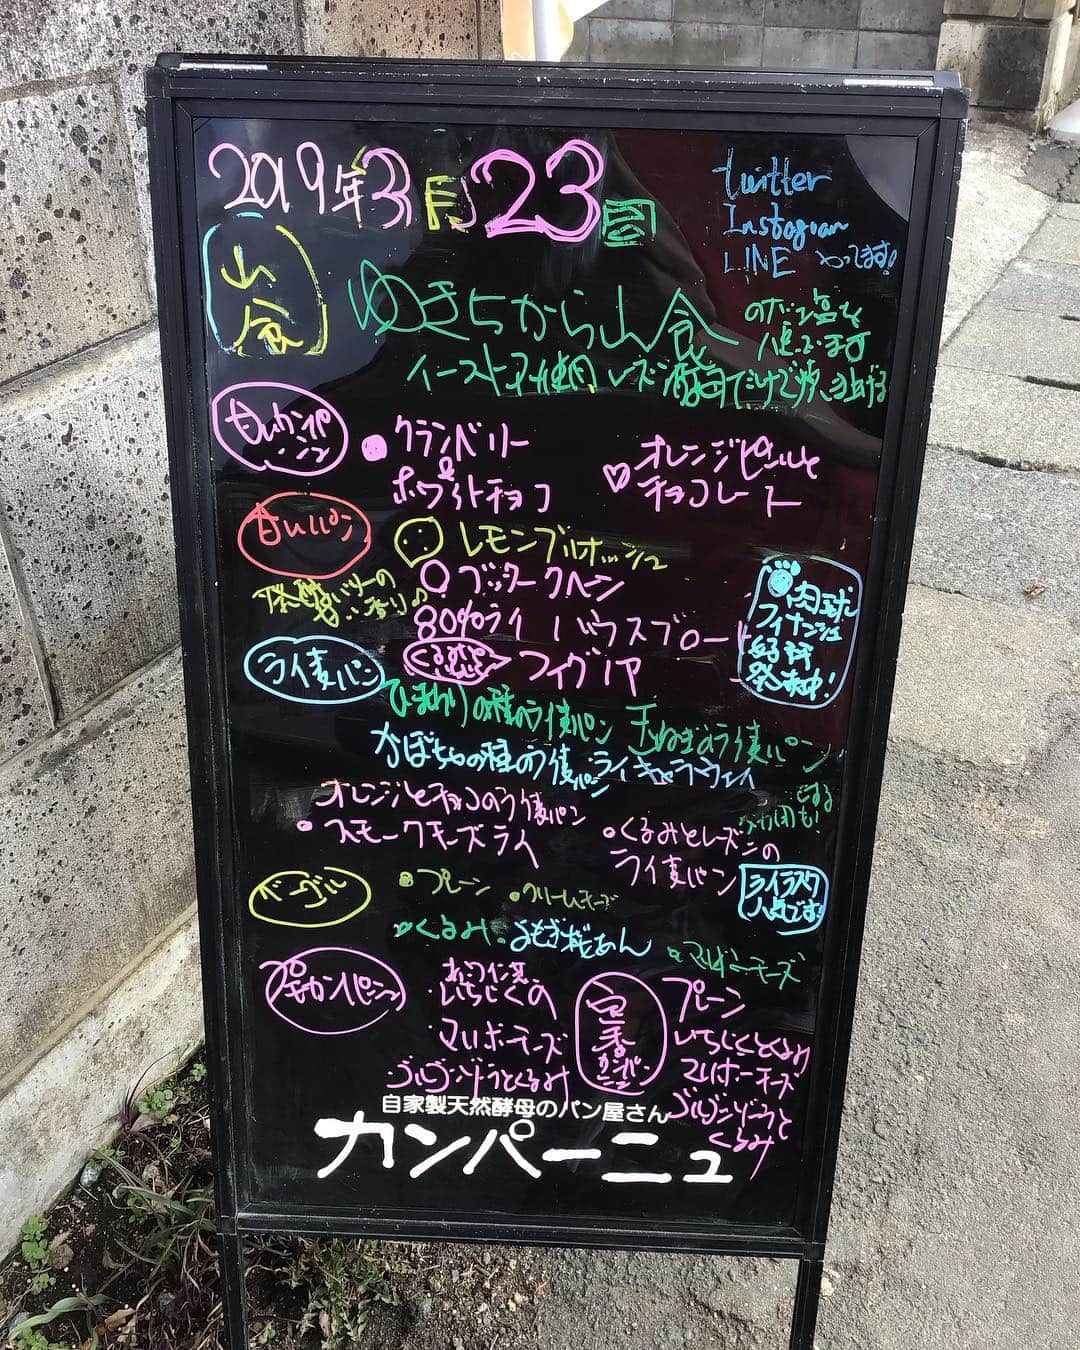 2019年3月23日
twitter
Instagram
LINE やってます!
山食
ゆきちから山食
イースト不使用 レーズン酵母だけで炊き上げる
甘いカンパーニュ
クランベリー
&
ホワイトチョコ
オレンジピールと
チョコレート
甘いパン
レモンブリオッシュ
発酵バターの
香り♪
ブッタークーヘン
80%ライ ハウスブロート
肉球
フィナンシェ
好評
発売中!
ライ麦パン
くるみパン
フィグノア
ひまわりの種のライ麦パン 玉ねぎのライ麦パン
かぼちゃの種のライ麦パン ライキャラウェイ
オレンジとチョコのライ麦パン
スモークチーズライ
くるみとレーズンの
ライ麦パン
ライラスク
人気です!
ベーグル
プレーン
クリームチーズ
くるみ
よもぎ桜あん
マリボーチーズ
プチカンパーニュ
赤ワイン煮
いちじくの
マリボーチーズ
ゴルゴンゾーラとくるみ
全香カンパーニュ
プレーン
いちじくとくるみ
マリボーチーズ
ゴルゴンゾーラと
くるみ
自家製天然酵母のパン屋さん
カンパーニュ